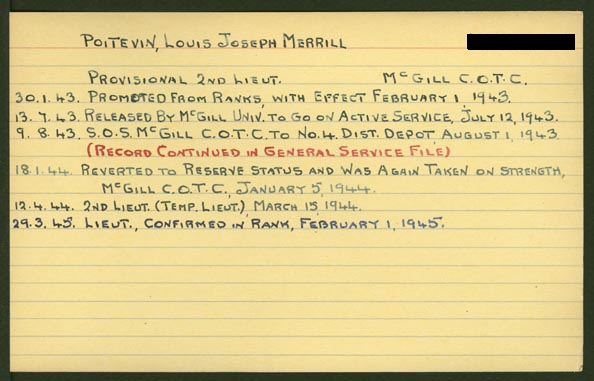 POITEVIN, LOUIS JOSEPH MERRILL
PROVISIONAL 2ND LIEUT. MCGILL C.O.T.C.
30.1.43. PROMOTED FROM RANKS, WITH EFFECT FEBRUARY 1 1943.
13.7.43. RELEASED BY MCGILL UNIV. TO GO ON ACTIVE SERVICE, JULY 12, 1943.
9.8.43. S.O.S. MCGILL C.O.T.C. TO NO.4. DIST. DEPOT AUGUST 1, 1943
(RECORD CONTINUED IN GENERAL SERVICE FILE)
18.1.44. REVERTED TO RESERVE STATUS AND WAS AGAIN TAKEN ON STRENGTH,
MCGILL C.O.T.C., JANUARY 5, 1944.
12.4.44. 2ND LIEUT. (TEMP. LIEUT.), MARCH 15, 1944.
29.3.45. LIEUT., CONFIRMED IN RANK, FEBRUARY 1, 1945.